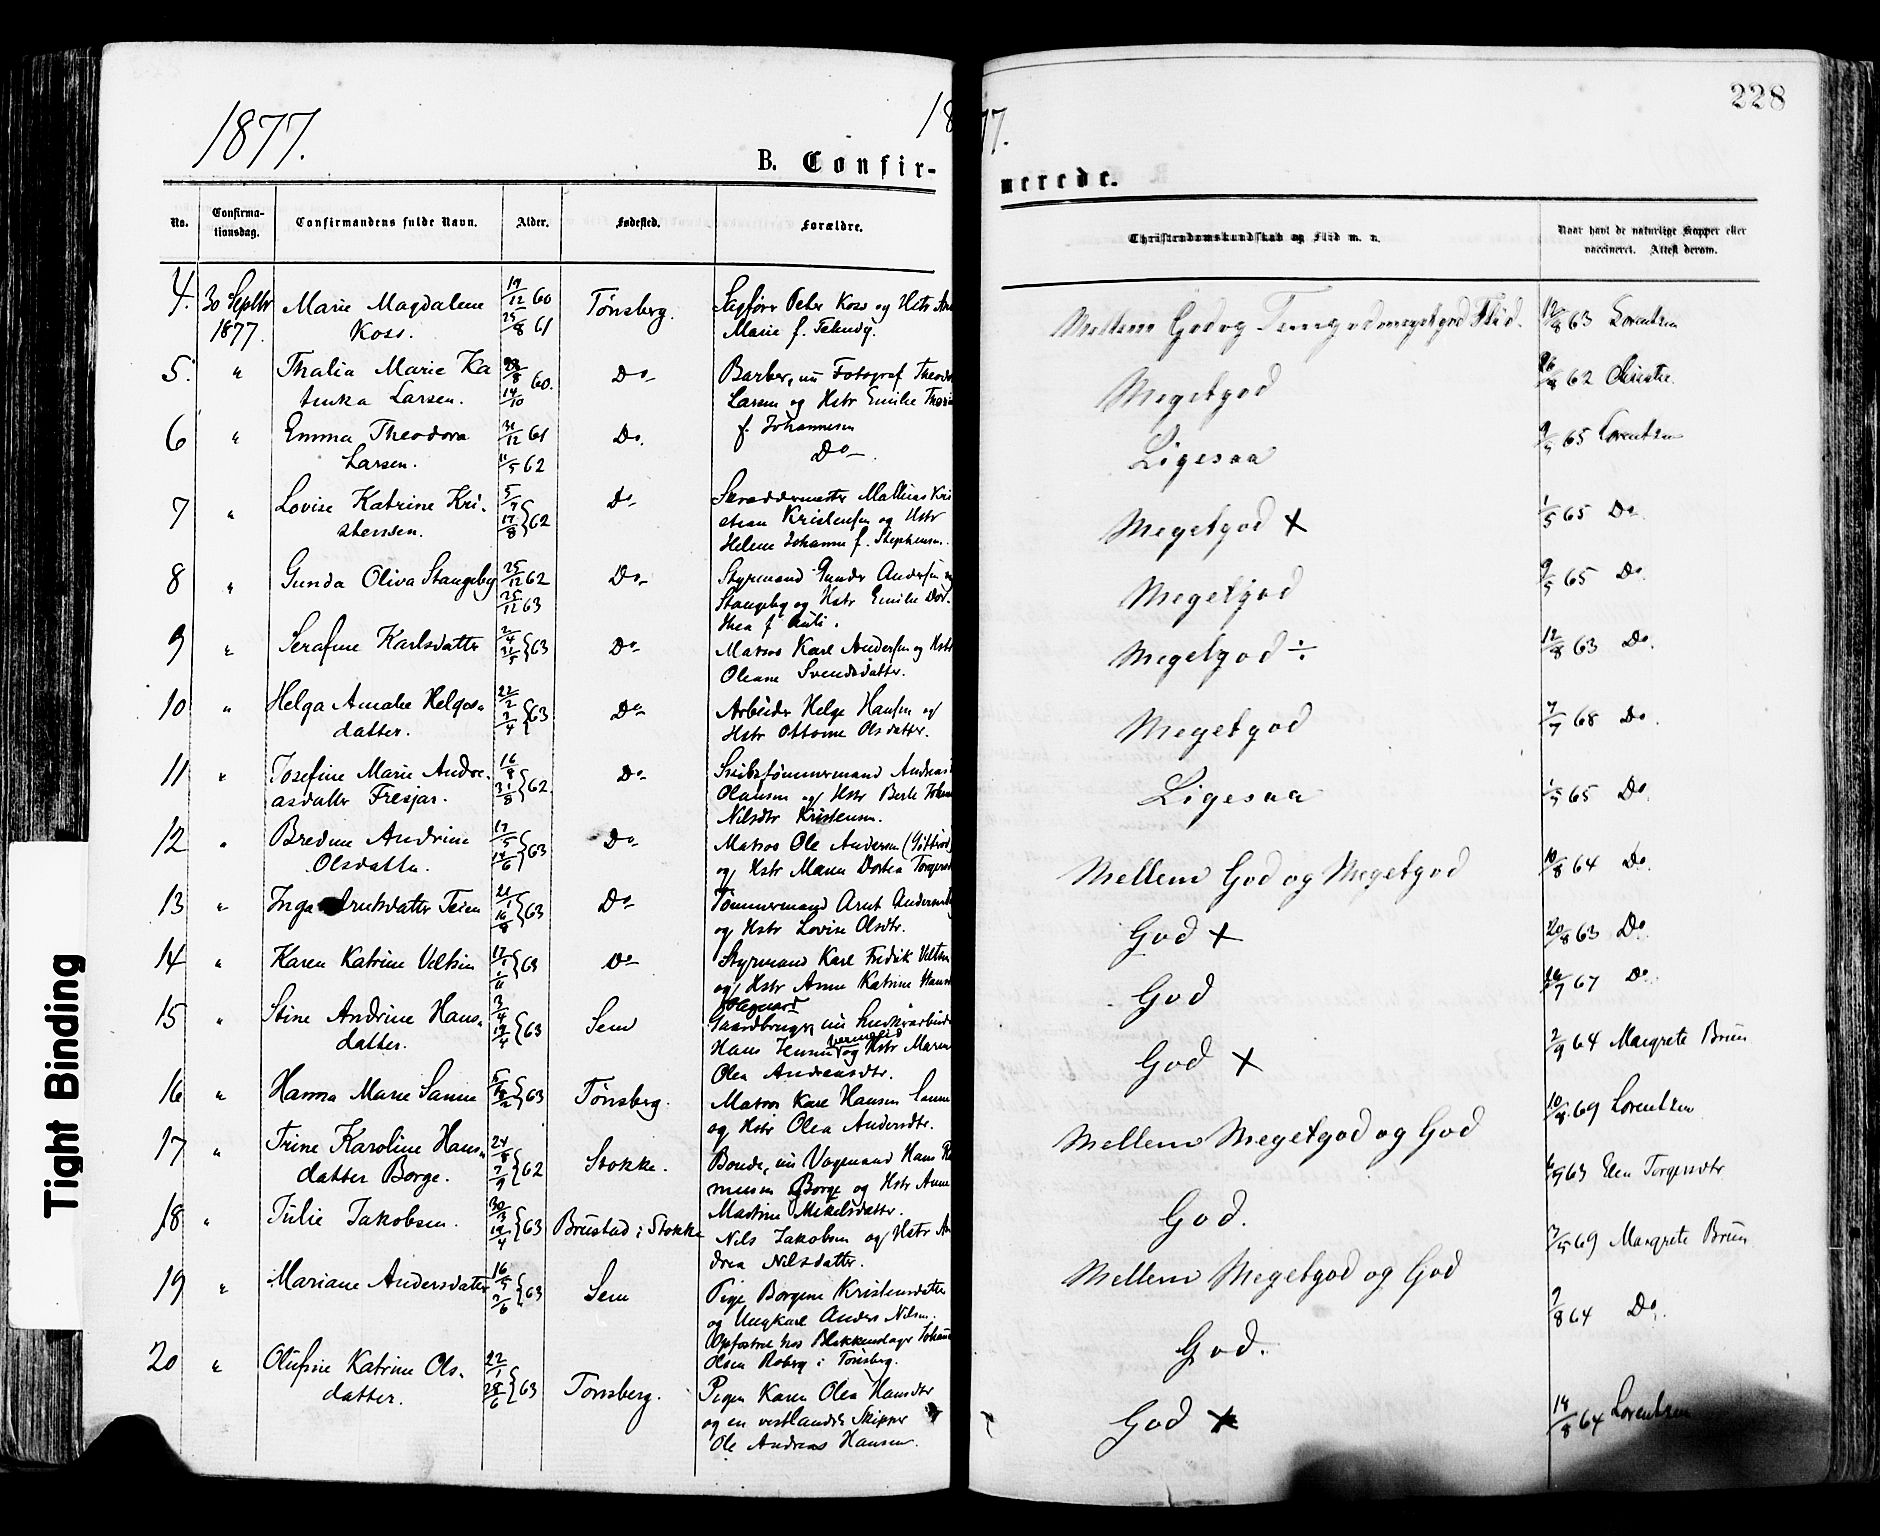 1877.
18
77.
228
B. Confir-
merede.
No. Confirma-tionsdag. Confirmandens fulde Navn. Alder. Fødested. Forældre. Christendomskundskab og Flid m. v. Naar havt de naturlige Kopper eller vaccineret. Attest derom.
4. 30 Septbr Marie Magdalene 19/12 60 Tønsberg. Sagfører Peter Koss og Hstr
1877. Koss. 25/8 61 Marie f.
Mellem God og megetgod Flid. 12/8 63 Lorentzen
5. " Thalia Marie Ka 28/8 60. Do Barber, nu Fotograf Theodor
tinka Larsen. 14/10 Larsen og Hstr Emilie
f. Johannesen
Megetgod 26/8 62 Christie.
6 " Emma Theodora 31/12 61 Do. Do
Larsen. 11/5 62
Ligesaa 65 Lorentzen
7 " Lovise Katrine Kri- 5/7 Do Skræddermester Mathias Kri
stensen. 17/8 62 stian Kristensen og Hstr
Helene Johanne f. Stephensen.
Megetgod + 1/5 65 Do
8 " Gunda Oliva Stangeby 25/12 62 Do Styrmand Gunder Andersen
25/12 63 Stangeby og Hstr Emilie Dor-
thea f.
Megetgod 9/5 65 Do
9 " Serafine Karlsdatter 2/4 21/5 63 Do Matros Karl Andersen og Hstr
Oleane Svendsdatter.
Megetgod ÷ 12/8 63 Do.
10 " Helga Amalie Helges- 22/2 63 Do Arbeider Helge Hansen og
datter. 2/4 Hstr Ottomine Olsdatter.
Megetgod 7/7 68 Do.
11 " Josefine Marie Andre- 16/8 Do Skibstømmermand Andreas
asdatter Fresjar. 31/8 62 Olausen og Hstr Berte
Nilsdtr Kristensen.
Ligesaa 65 Do.
12 " Andrine 17/5 Do Matros Ole Andersen
Olsdatter. 14/6 63 og Hstr Maren Dortea
Mellem God og Megetgod 10/8 64 Do.
13 " Inga Arntsdatter Teien 21/1 16/8 63 Do Tømmermand Arnt Andersen
og Hstr Lovise Olsdtr.
God + 20/8 63 Do
14 " Karen Katrine Veltzin 17/1 63 Do Styrmand Karl Fredrik
og Hstr Anne Katrine
God 67 Do
15 " Stine Andrine Hans- 3/4 Sem Gaardbruger, nu
datter. 19/4 63 Hans Jensen og Hstr Maren
Olea Andreasdtr.
God + 2/9 64 Margrete Brun
16 " Hanna Marie Sanne 63 Tønsberg. Matros Karl Hansen Sanne
og Hstr Olea Andersdtr.
Mellem Megetgod og God 10/8 69 Lorentzen
17 " Trine Karoline Hans- 24/8 Stokke. Bonde, nu Vognmand Hans
datter Borge. 7/9 62 Borge og Hstr Anne
Martine Mikelsdatter.
God. 63 Elen Torgersdtr
18 " Julie Jakobsen. 30/3 14/4 63 Brustad i Stokke Nils Jakobsen og Hstr An
drea Nilsdatter.
Mellem Megetgod og God 7/5 69 Margrete Brun
19 " Mariane Andersdatter 16/5 7/6 63 Sem Pige Borgine Kristensdatter
og Ungkarl Anders Nilsen.
Opfostret hos Blikkenslager
Olsen Roberg i Tønsberg.
God. 7/8 64 Do.
20 " Olufine Katrine Ols- 22/1 Tønsberg. Pigen Karen Olea Hansdtr
datter. 28/6 63 og en vestlandsk Skipper
Ole Andreas Hansen.
God + 14/8 64 Lorentzen
Tight Binding